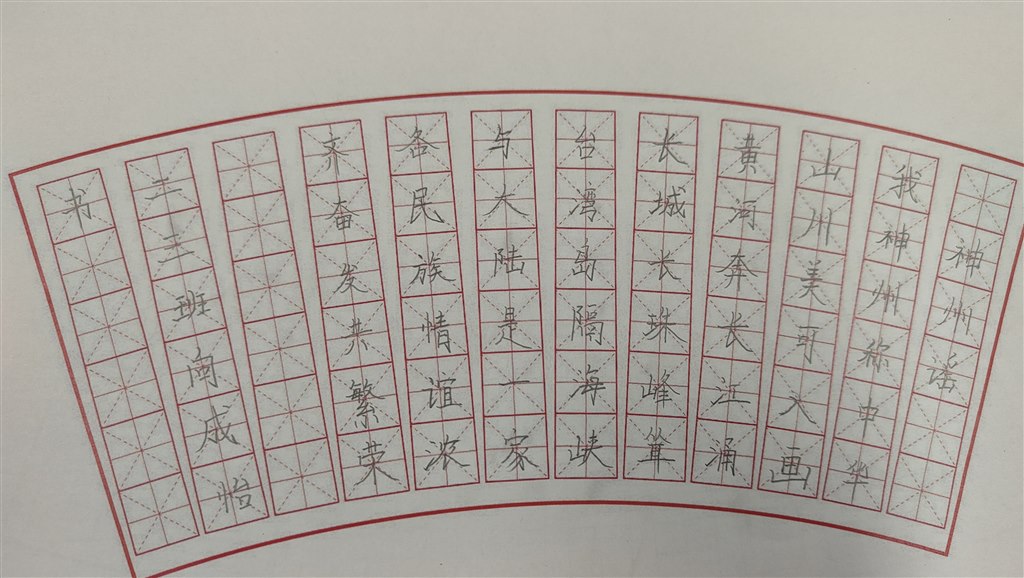 神州谣
我神州称中华
山川美可入画
黄河奔长江涌
长城长珠峰耸
台湾岛隔海峡
与大陆是一家
各民族情谊浓
齐奋发共繁荣
二三班闵成怡
书